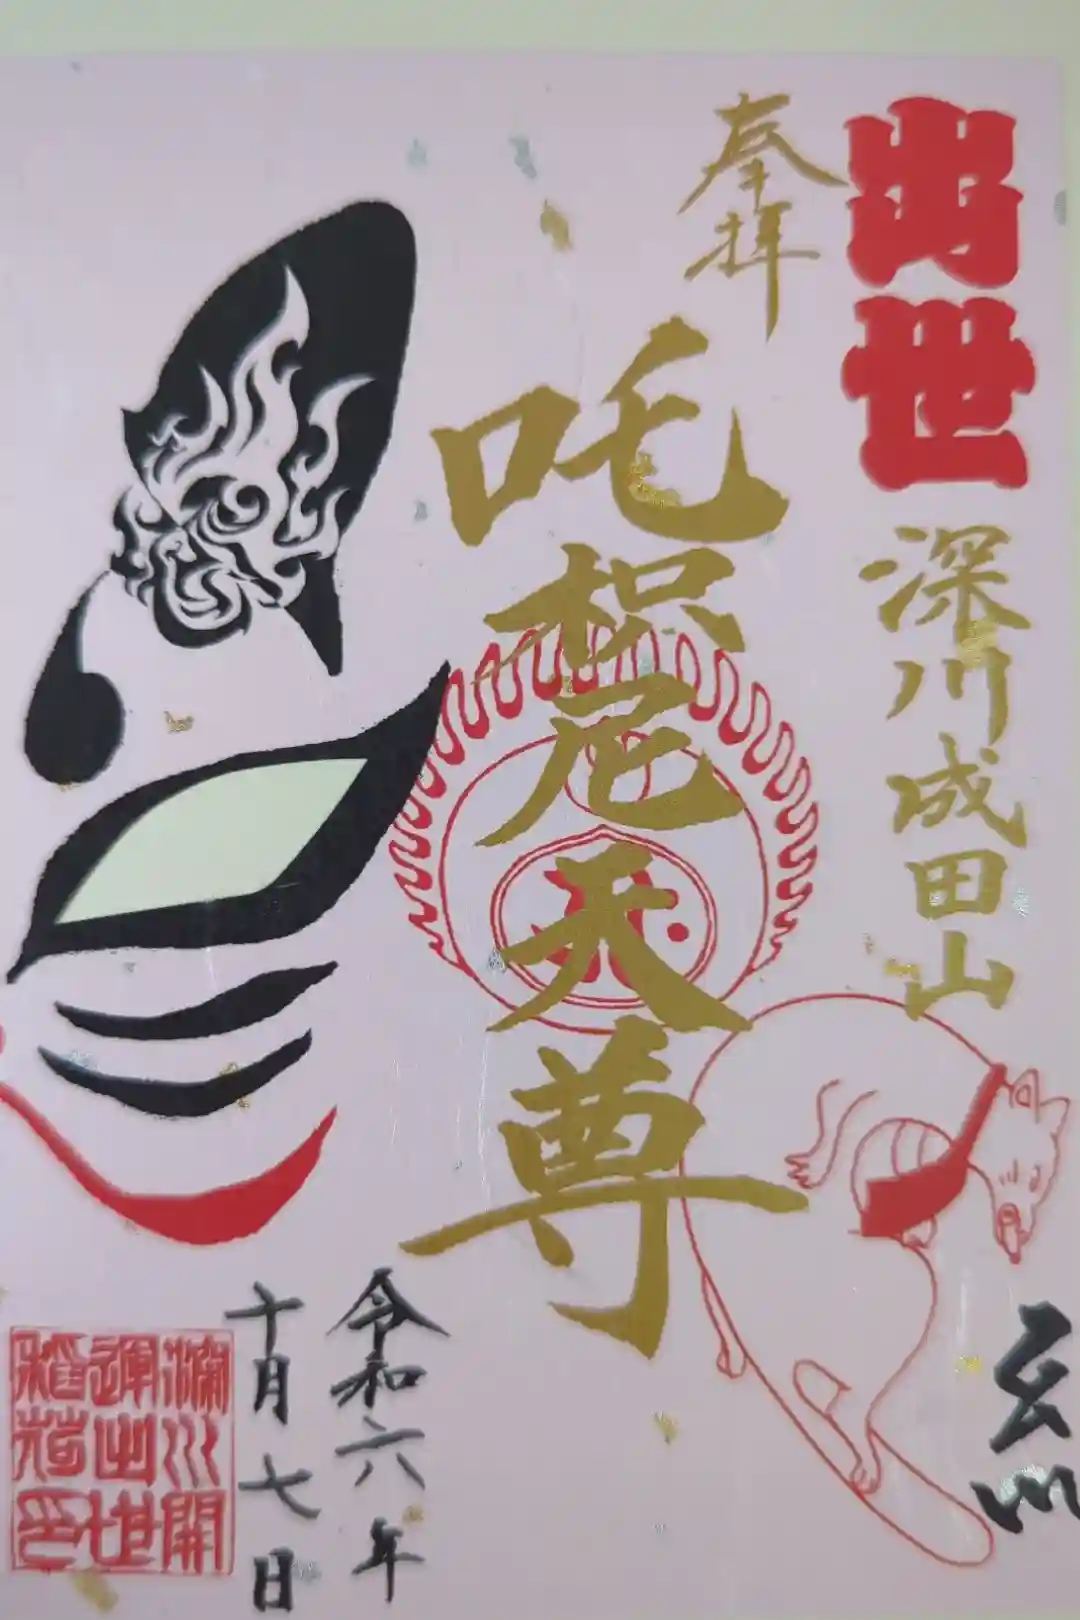 出世
深川成田山
奉拝
吒枳尼天尊
令和六年
十月七日
深川開
運出世
稲荷印